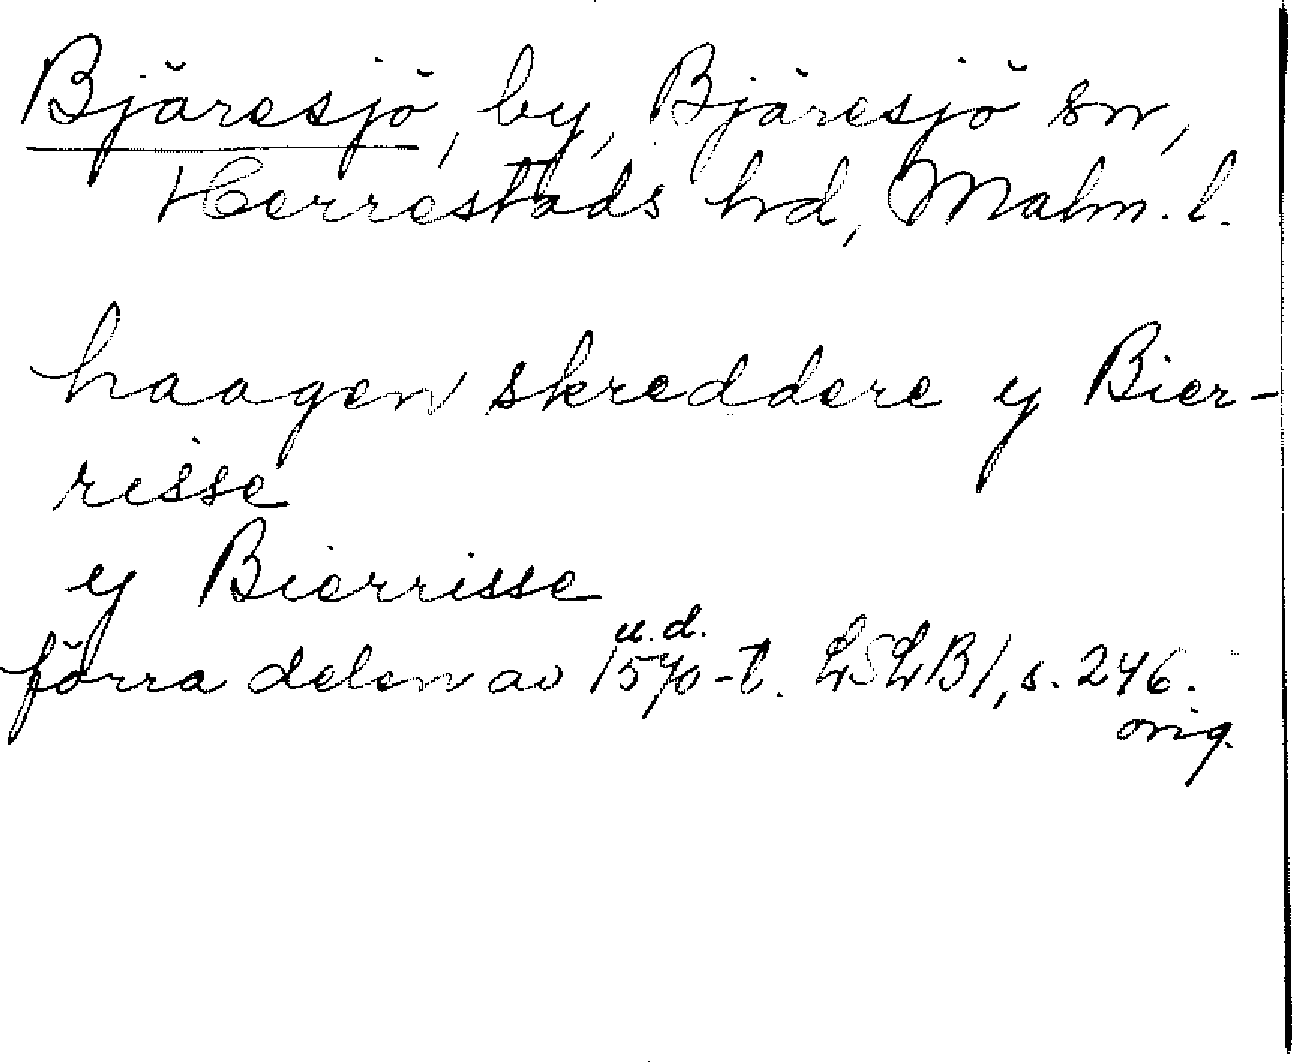 Bjäresjö, by, Bjäresjö sn,
Herrestads hd, Malm. l.
haagen skreddere y Bier-
risse
y Bierrisse
u.d.
förra delen av 1570-t. LSLB1, s. 246.
orig.